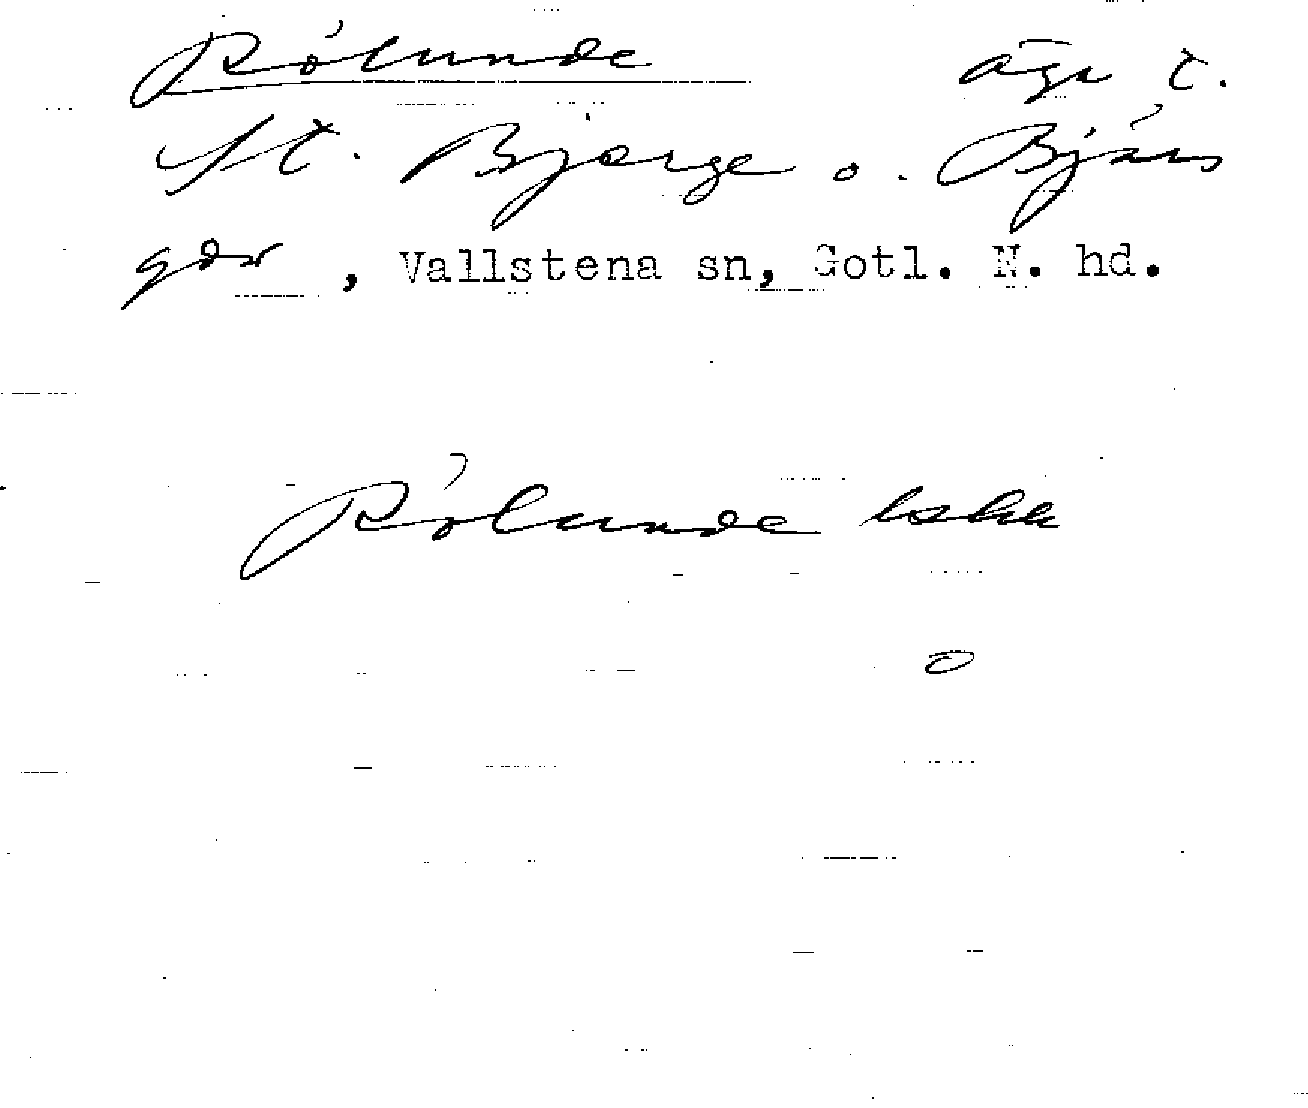 Rólunde ägr t.
St. Bjerge o. Bjärs
gdr, Vallstena sn, Gotl. N. hd.
Rólunde